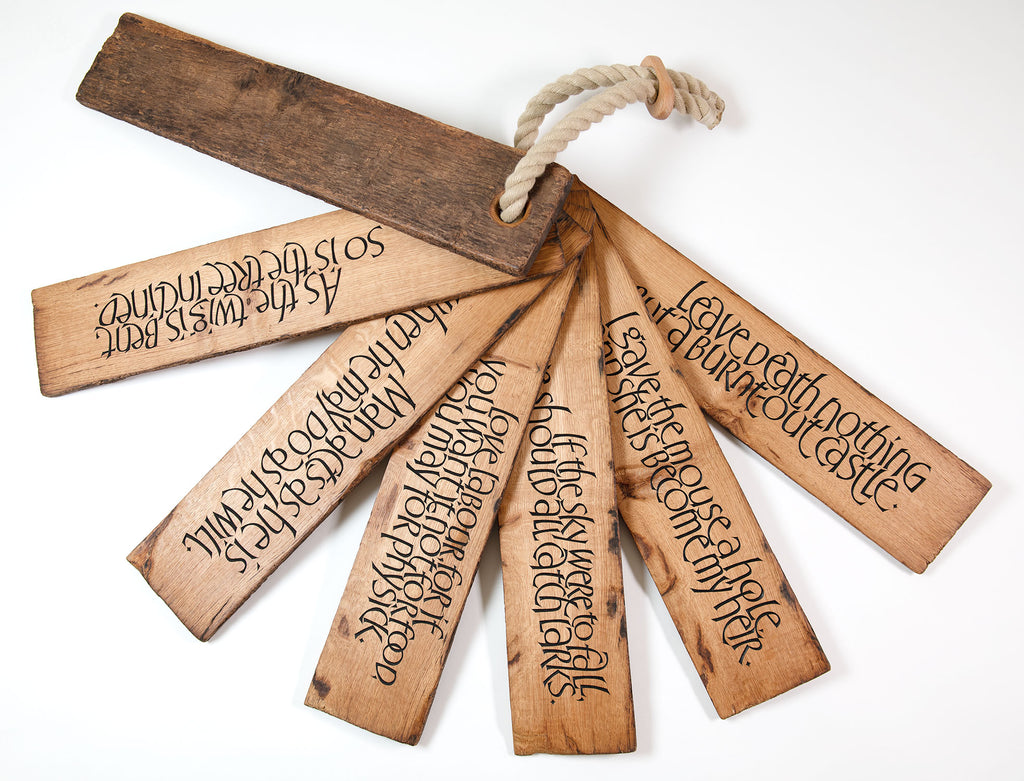 As the twig is Bent,
so is the tree inclined.
Man acts as he is
when he may do as he will.
Love labour for if
you want it not for food,
you may for physick.
If the sky were to fall,
should all catch larks.
I gave the mouse a hole,
she is Become my heir.
Leave Death nothing
But a Burnt out castle.